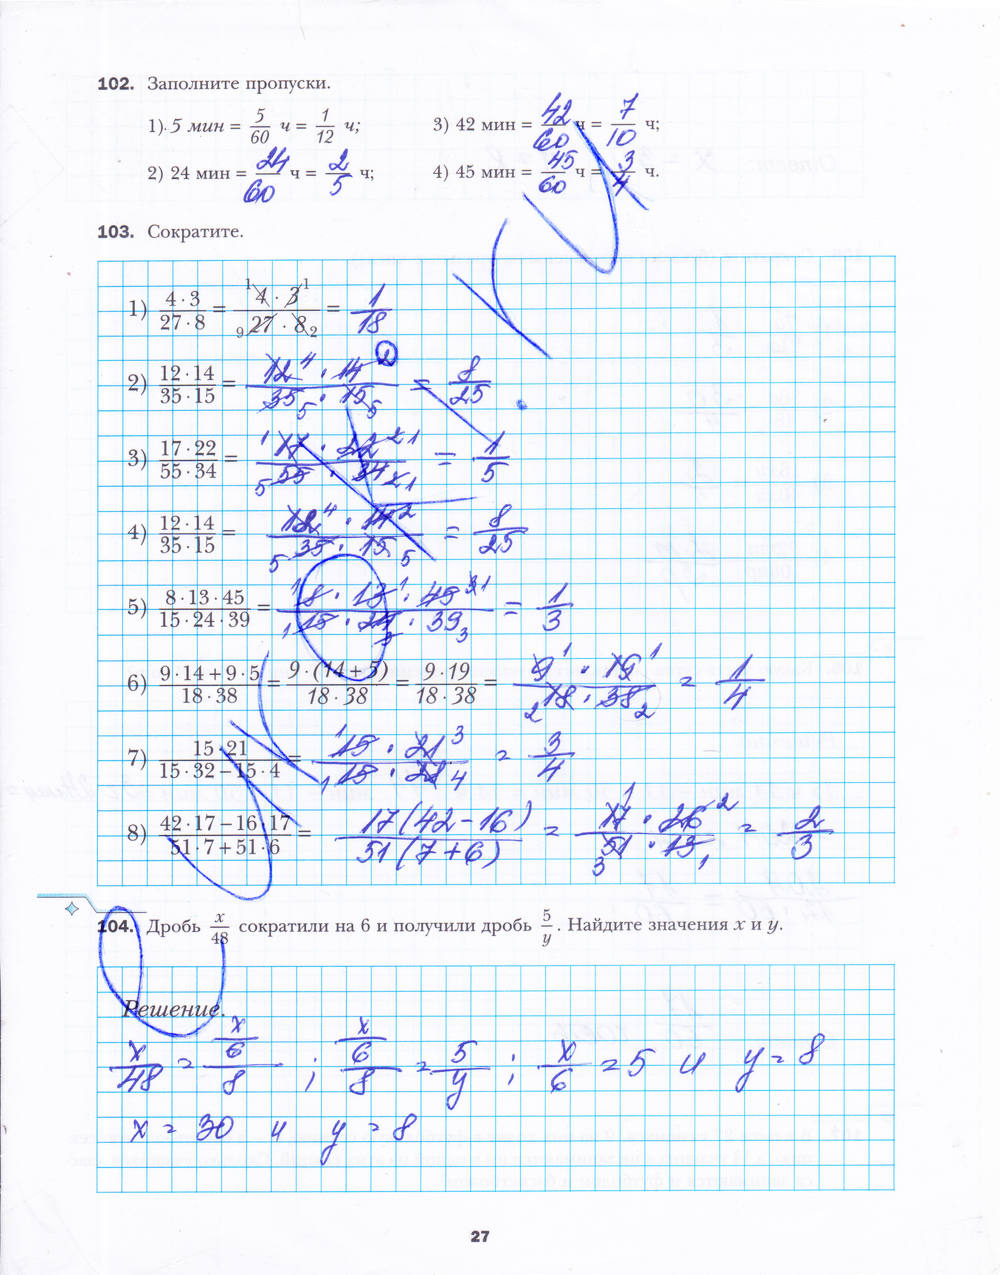 102. Заполните пропуски.
1) 5 мин = 5/60 ч = 1/12 ч; 3) 42 мин = 42/60 ч = 7/10 ч;
2) 24 мин = 24/60 ч = 2/5 ч; 4) 45 мин = 45/60 ч = 3/4 ч.
103. Сократите.
1) (4 · 3)/(27 · 8) = (¹4 · 3¹)/(₉27 · 8₂) = 1/18
2) (12 · 14)/(35 · 15) = (12⁴ · 14²)/(35₅ · 15₅) = 8/25
3) (17 · 22)/(55 · 34) = (¹17 · 22²¹)/(₅55 · 34₂₁) = 1/5
4) (12 · 14)/(35 · 15) = (12⁴ · 14²)/(₅35 · 15₅) = 8/25
5) (8 · 13 · 45)/(15 · 24 · 39) = (¹8 · 13¹ · 45³¹)/(₁15 · 24₃ · 39₃) = 1/3
6) (9 · 14 + 9 · 5)/(18 · 38) = (9 · (14 + 5))/(18 · 38) = (9 · 19)/(18 · 38) = (9¹ · 19¹)/(₂18 · 38₂) = 1/4
7) (15 · 21)/(15 · 32 – 15 · 4) = (¹15 · 21³)/(₁15 · 28₄) = 3/4
8) (42 · 17 – 16 · 17)/(51 · 7 + 51 · 6) = (17(42 – 16))/(51(7 + 6)) = (17¹ · 26²)/(₃51 · 13₁) = 2/3
104. Дробь x/48 сократили на 6 и получили дробь 5/y. Найдите значения x и y.
Решение.
x/48 = (x/6)/8 ; (x/6)/8 = 5/y ; x/6 = 5 и y = 8
x = 30 и y = 8
27